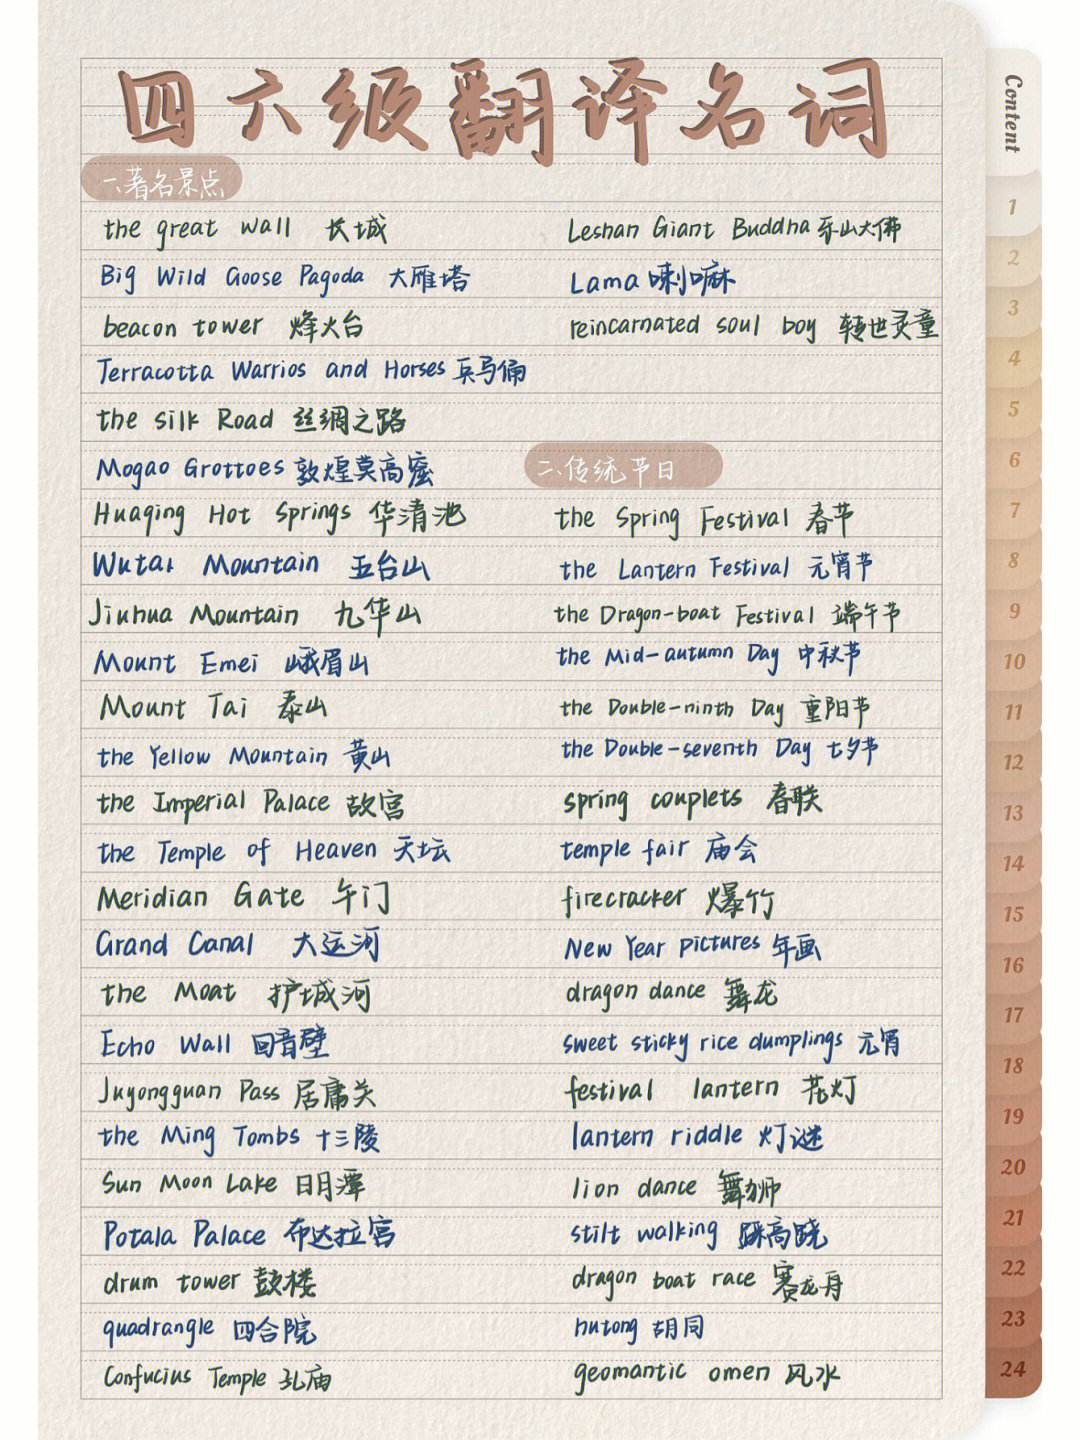 四六级翻译名词
一、著名景点
the great wall 长城
Big Wild Goose Pagoda 大雁塔
beacon tower 烽火台
Terracotta Warrios and Horses 兵马俑
the silk Road 丝绸之路
Mogao Grottoes 敦煌莫高窟
Huaqing Hot Springs 华清池
Wutai Mountain 五台山
Jiuhua Mountain 九华山
Mount Emei 峨眉山
Mount Tai 泰山
the Yellow Mountain 黄山
the Imperial Palace 故宫
the Temple of Heaven 天坛
Meridian Gate 午门
Grand Canal 大运河
the Moat 护城河
Echo Wall 回音壁
Juyongguan Pass 居庸关
the Ming Tombs 十三陵
Sun Moon Lake 日月潭
Potala Palace 布达拉宫
drum tower 鼓楼
quadrangle 四合院
Confucius Temple 孔庙
Leshan Giant Buddha 乐山大佛
Lama 喇嘛
reincarnated soul boy 转世灵童
二、传统节日
the Spring Festival 春节
the Lantern Festival 元宵节
the Dragon-boat Festival 端午节
the Mid-autumn Day 中秋节
the Double-ninth Day 重阳节
the Double-seventh Day 七夕节
spring couplets 春联
temple fair 庙会
firecracker 爆竹
New Year pictures 年画
dragon dance 舞龙
sweet sticky rice dumplings 元宵
festival lantern 花灯
lantern riddle 灯谜
lion dance 舞狮
stilt walking 踩高跷
dragon boat race 赛龙舟
hutong 胡同
geomantic omen 风水
Content
1
2
3
4
5
6
7
8
9
10
11
12
13
14
15
16
17
18
19
20
21
22
23
24